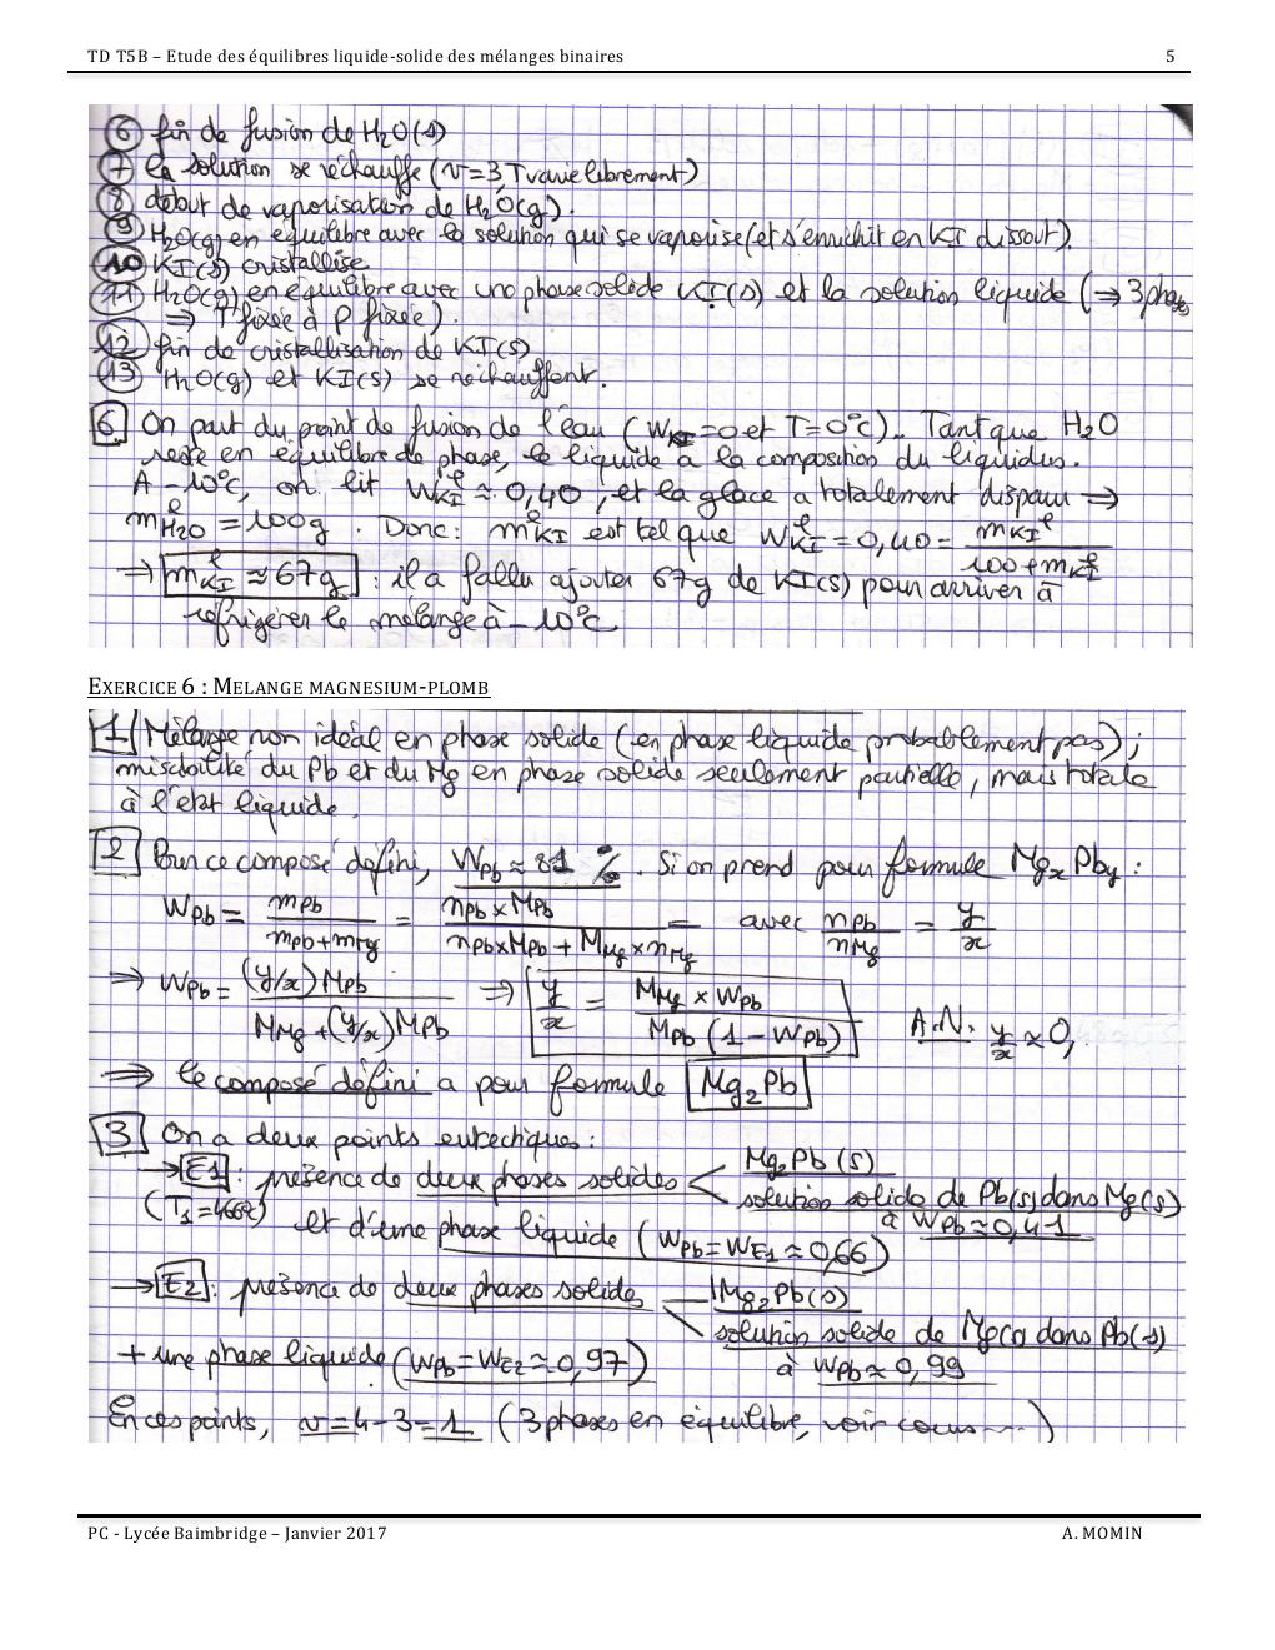 TD T5B – Etude des équilibres liquide-solide des mélanges binaires 5
⑥ fin de fusion de H₂O(s)
⑦ la solution se réchauffe (v=3, T varie librement)
⑧ début de vaporisation de H₂O(g).
⑨ H₂O(g) en équilibre avec la solution qui se vaporise (et s'enrichit en KI dissout).
⑩ KI(s) cristallise
⑪ H₂O(g) en équilibre avec une phase solide KI(s) et la solution liquide (→ 3 phases
⇒ T fixée à P fixée).
⑫ fin de cristallisation de KI(s)
⑬ H₂O(g) et KI(s) se réchauffent.
6 On part du point de fusion de l'eau (w_KI=0 et T=0°C). Tant que H₂O
reste en équilibre de phase, le liquide a la composition du liquidus.
A -10°C, on lit w^l_KI ≈ 0,40, et la glace a totalement disparu ⇒
m^l_H2O = 100g. Donc : m^l_KI est tel que w^l_KI = 0,40 = m_KI^l / (100+m_KI^l)
⇒ m^l_KI ≈ 67g : il a fallu ajouter 67g de KI(s) pour arriver à
réfrigérer le mélange à -10°C
EXERCICE 6 : MELANGE MAGNESIUM-PLOMB
1/ Mélange non idéal en phase solide (en phase liquide probablement pas) ;
miscibilité du Pb et du Mg en phase solide seulement partielle, mais totale
à l'état liquide.
2 Pour ce composé défini, w_Pb ≈ 81 %. Si on prend pour formule Mg_xPb_y :
w_Pb = m_Pb / (m_Pb+m_Mg) = n_Pb × M_Pb / (n_Pb×M_Pb + M_Mg×n_Mg) = avec n_Pb/n_Mg = y/x
⇒ w_Pb = (y/x)M_Pb / (M_Mg+(y/x)M_Pb) ⇒ y/x = M_Mg × w_Pb / (M_Pb (1-w_Pb)) A.N. y/x ≈ 0,
⇒ le composé défini a pour formule Mg₂Pb
3 On a deux points eutectiques :
→ E1 : présence de deux phases solides < Mg₂Pb(s)
solution solide de Pb(s) dans Mg(s)
(T₁=466°C) à w_Pb ≈ 0,41
et d'une phase liquide (w_Pb = w_E1 ≈ 0,66)
→ E2 : présence de deux phases solides Mg₂Pb(s)
solution solide de Mg(s) dans Pb(s)
+ une phase liquide (w_Pb = w_E2 ≈ 0,97) à w_Pb ≈ 0,99
En ces points, v = 4-3 = 1 (3 phases en équilibre, voir cours....)
PC - Lycée Baimbridge – Janvier 2017 A. MOMIN